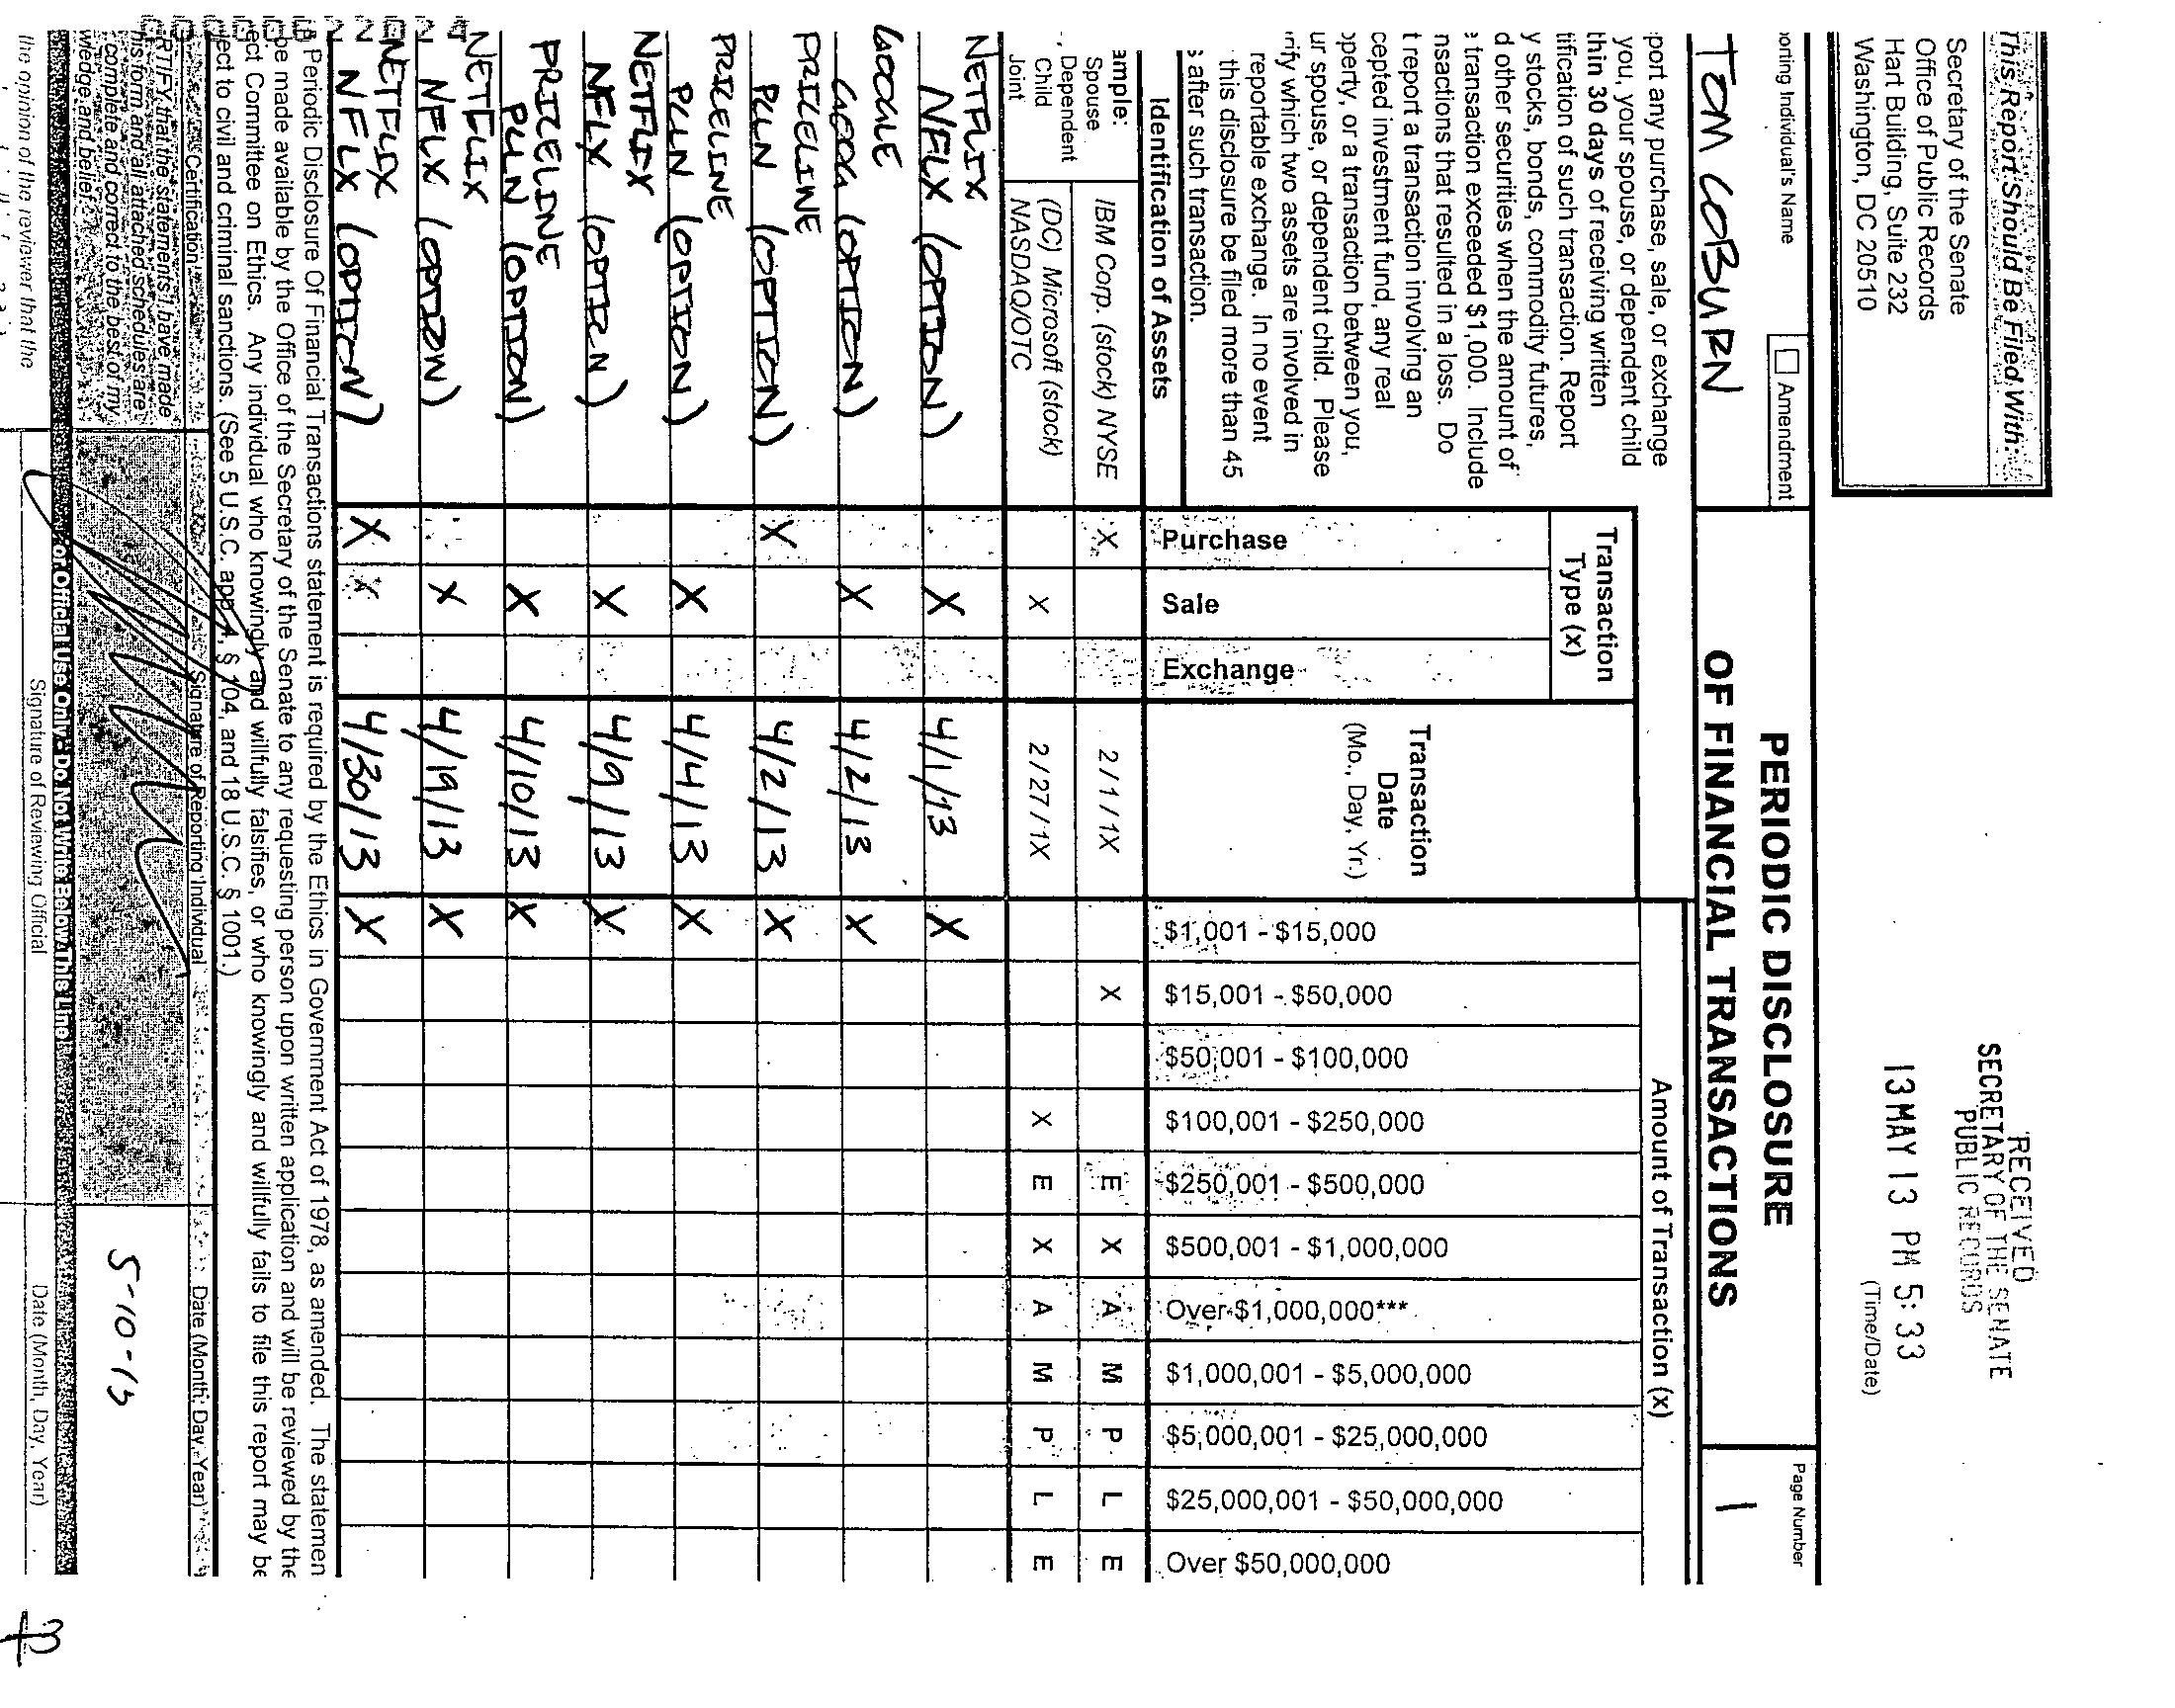 RECEIVED
SECRETARY OF THE SENATE
PUBLIC RECORDS
13 MAY 13 PM 5:33
(Time/Date)
This Report Should Be Filed With:
Secretary of the Senate
Office of Public Records
Hart Building, Suite 232
Washington, DC 20510
orting Individual's Name
Amendment
TOM COBURN
PERIODIC DISCLOSURE
OF FINANCIAL TRANSACTIONS
Page Number
1
port any purchase, sale, or exchange
you, your spouse, or dependent child
thin 30 days of receiving written
tification of such transaction. Report
y stocks, bonds, commodity futures,
d other securities when the amount of
e transaction exceeded $1,000. Include
nsactions that resulted in a loss. Do
t report a transaction involving an
cepted investment fund, any real
operty, or a transaction between you,
ur spouse, or dependent child. Please
rify which two assets are involved in
reportable exchange. In no event
this disclosure be filed more than 45
s after such transaction.
Identification of Assets
Transaction
Type (x)
Purchase
Sale
Exchange
Transaction
Date
(Mo., Day, Yr.)
Amount of Transaction (x)
$1,001 - $15,000
$15,001 - $50,000
$50,001 - $100,000
$100,001 - $250,000
$250,001 - $500,000
$500,001 - $1,000,000
Over $1,000,000***
$1,000,001 - $5,000,000
$5,000,001 - $25,000,000
$25,000,001 - $50,000,000
Over $50,000,000
ample:
Spouse
, Dependent
Child
Joint
IBM Corp. (stock) NYSE X 2/1/1X X E X A M P L E
(DC) Microsoft (stock)
NASDAQ/OTC X 2/27/1X X E X A M P L E
NETFLIX
NFLX (OPTION) X 4/1/13 X
GOOGLE
GOOG (OPTION) X 4/2/13 X
PRICELINE
PCLN (OPTION) X 4/2/13 X
PRICELINE
PCLN (OPTION) X 4/4/13 X
NETFLIX
NFLX (OPTION) X 4/9/13 X
PRICELINE
PCLN (OPTION) X 4/10/13 X
NETFLIX
NFLX (OPTION) X 4/19/13 X
NETFLIX
NFLX (OPTION) X X 4/30/13 X
Periodic Disclosure Of Financial Transactions statement is required by the Ethics in Government Act of 1978, as amended. The statemen
be made available by the Office of the Secretary of the Senate to any requesting person upon written application and will be reviewed by the
ect Committee on Ethics. Any individual who knowingly and willfully falsifies, or who knowingly and willfully fails to file this report may be
ject to civil and criminal sanctions. (See 5 U.S.C. app. 4, § 104, and 18 U.S.C. § 1001.)
Certification
Signature of Reporting Individual
Date (Month, Day, Year)
RTIFY that the statements I have made
his form and all attached schedules are
complete and correct to the best of my
wledge and belief.
5-10-13
For Official Use Only - Do Not Write Below This Line
the opinion of the reviewer that the
Signature of Reviewing Official
Date (Month, Day, Year)